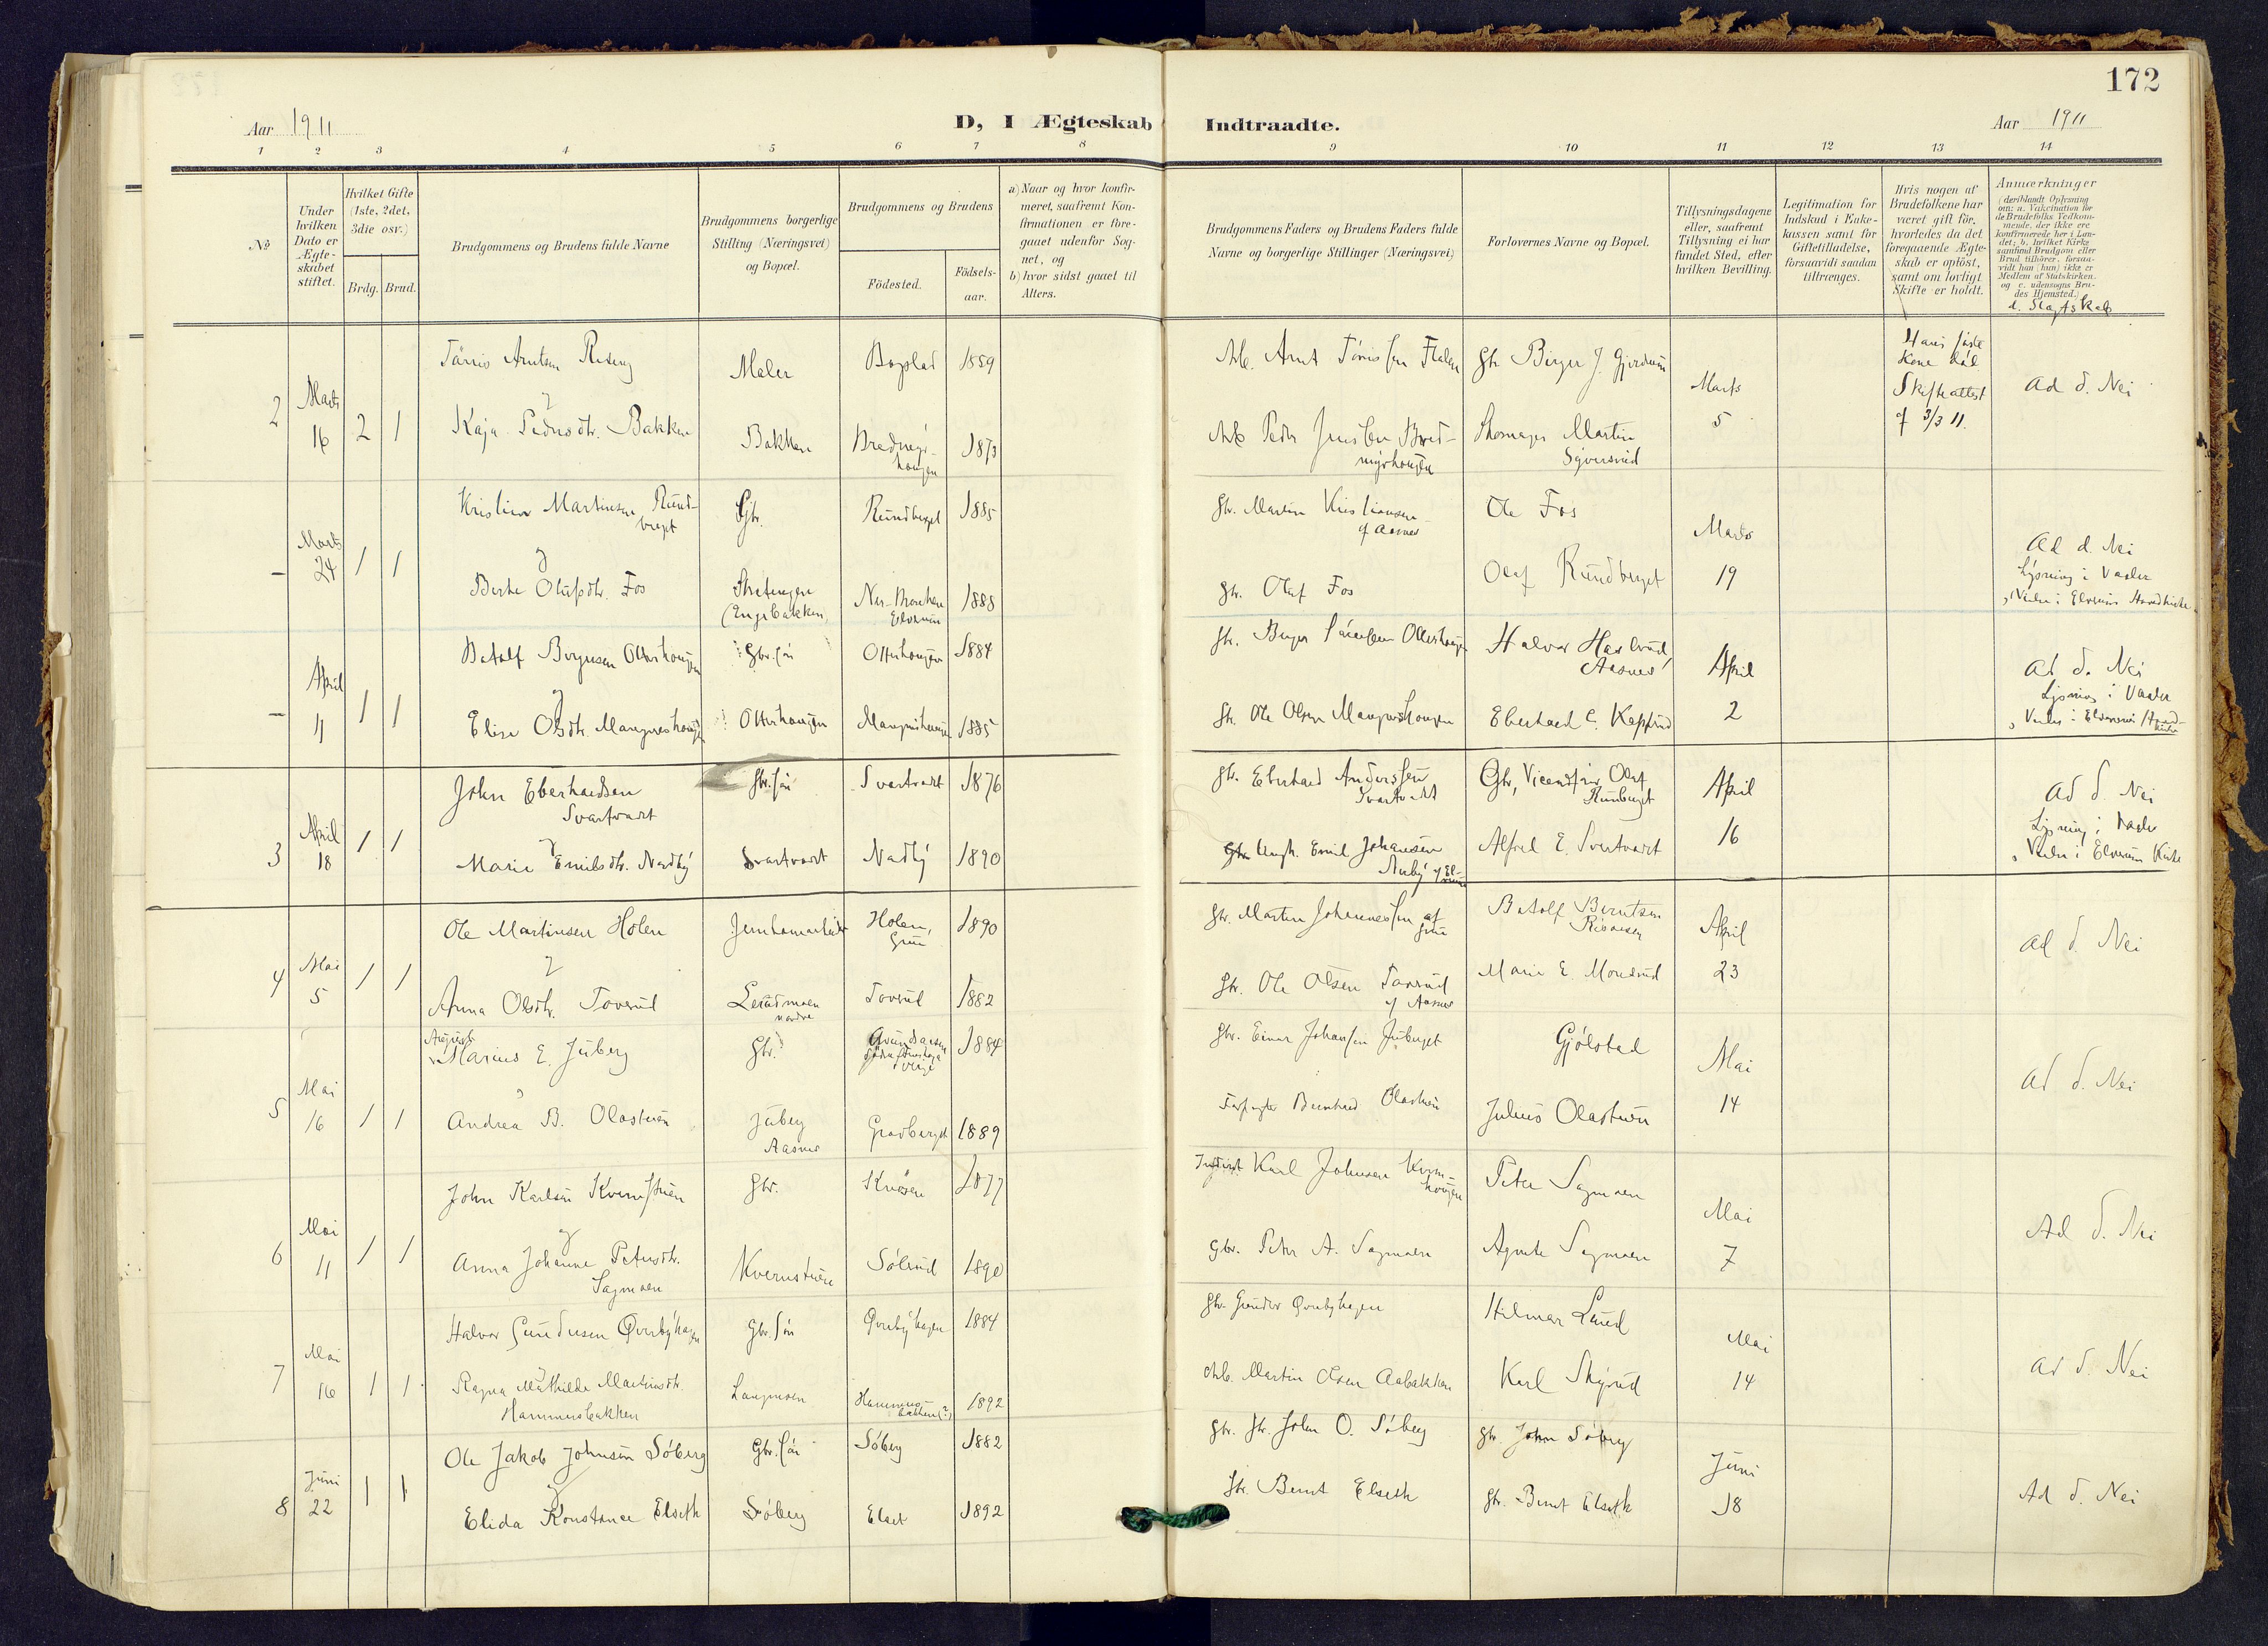 172
Aar 1911
D, I Ægteskab Indtraadte.
Aar 1911
1 2 3 4 5 6 7 8 9 10 11 12 13 14
No
Under hvilken Dato er Ægteskabet stiftet.
Hvilket Gifte (1ste, 2det, 3die osv.)
Brdg. Brud.
Brudgommens og Brudens fulde Navne
Brudgommens borgerlige Stilling (Næringsvei) og Bopæl.
Brudgommens og Brudens
Födested.
Födselsaar.
a) Naar og hvor konfirmeret, saafremt Konfirmationen er foregaaet udenfor Sognet, og
b) hvor sidst gaaet til Alters.
Brudgommens Faders og Brudens Faders fulde Navne og borgerlige Stillinger (Næringsvei)
Forlovernes Navne og Bopæl.
Tillysningsdagene eller, saafremt Tillysning ei har fundet Sted, efter hvilken Bevilling.
Legitimation for Indskud i Enkekassen samt for Giftetilladelse, forsaavidt saadan tiltrænges.
Hvis nogen af Brudefolkene har været gift för, hvorledes da det foregaaende Ægteskab er oplöst, samt om lovligt Skifte er holdt.
Anmærkninger
(deriblandt Oplysning om: a. Vakcination for de Brudefolks Vedkommende, der ikke ere konfirmerede her i Landet; b. hvilket Kirkesamfund Brudgom eller Brud tilhører, forsaavidt han (hun) ikke er Medlem af Statskirken, og c. udensogns Brudes Hjemsted.)
d. Slagtskab
2 Marts 16 2 1
Maler
Bakken
1859
Kaja Pedersdtr. Bakken
1873
Arb. Arnt
Gbr Birger J. Gjerdrum
Skomager Martin Syversrud
Marts 5
Hans første Kone død Skifteattest af 3/3 11.
Ad d. Nei
– Marts 24 1 1
Kristian Martinsen Rundberget
Gbr.
Rundberget 1885
Gbr. Martin Kristiansen af Aasnes
Ole Fos
Marts 19
Berte Olufsdtr. Fos
1888
Elverum
Gbr. Olaf Fos
Olaf Rundberget
Ad d. Nei
Lysning i Vaaler
Viede i Elverum Hovedkirke
– April 11 1 1
Gbr. søn
Otterhougen 1884
Halvor Haslrud, Aasnes
April 2
Elise Olsdtr. Mangneshougen
Otterhougen
1885
Gbr. Ole Olsen Mangneshougen
Eberhard C. Kapprud
Ad d. Nei
Lysning i Vaaler
3 April 18 1 1
John Eberhardsen Svartvadt
Gbr. søn
Svartvadt 1876
Gbr. Eberhard Anderssen Svartvadt
Gbr, Olaf
April 16
Marie Emilsdtr. Nordby
Svartvadt
1890
Emil Johansen
Alfred E. Svartvadt
Ad d. Nei
Lysning i Vaaler
Viede i Elverum Kirke
4 Mai 5 1 1
Ole Martinsen Holen
Jernbanearbeider
Holen, Grue 1890
Gbr. Martin Johannessen af Grue
April 23
Anna Olsdtr. Toverud
nordre
Toverud 1882
Gbr. Ole Olsen Toverud af Aasnes
Marie E. Monsrud
Ad d. Nei
5 Mai 16 1 1
August Marius E. Juberg
Gbr.
1884
Gbr. Einar Johansen Juberget
Gjölstad
Mai 14
Andrea B. Olastuen
Juberg Aasnes
Gravberget 1889
Bernhard Olastuen
Julius Olastuen
Ad d. Nei
6 Mai 11 1 1
John Karlsen Kvernstuen
Gbr.
1877
Karl Johnsen
Peter Sagmoen
Mai 7
Anna Johanne Petersdtr. Sagmoen
Kvernstuen
Sölrud 1890
Gbr. Peter A. Sagmoen
Agnete Sagmoen
Ad d. Nei
7 Mai 16 1 1
Halvor Gundersen Överbyhagen
Gbr. søn
Överbyhagen 1884
Gbr. Gunder Överbyhagen
Hilmar Lund
Mai 14
Ragna Mathilde Martinsdtr. Hammersbakken
Langmoen
Hammersbakken (?) 1892
Arb. Martin Olsen Aabakken
Karl Skyrud
Ad d. Nei
8 Juni 22 1 1
Ole Jakob Johnsen Söberg
Gbr. søn
Söberg 1882
Gbr. John O. Söberg
Gbr. John Söberg
Juni 18
Elida Konstance Elseth
Söberg
Elset 1892
Gbr. Bernt Elseth
Gbr. Bernt Elseth
Ad d. Nei